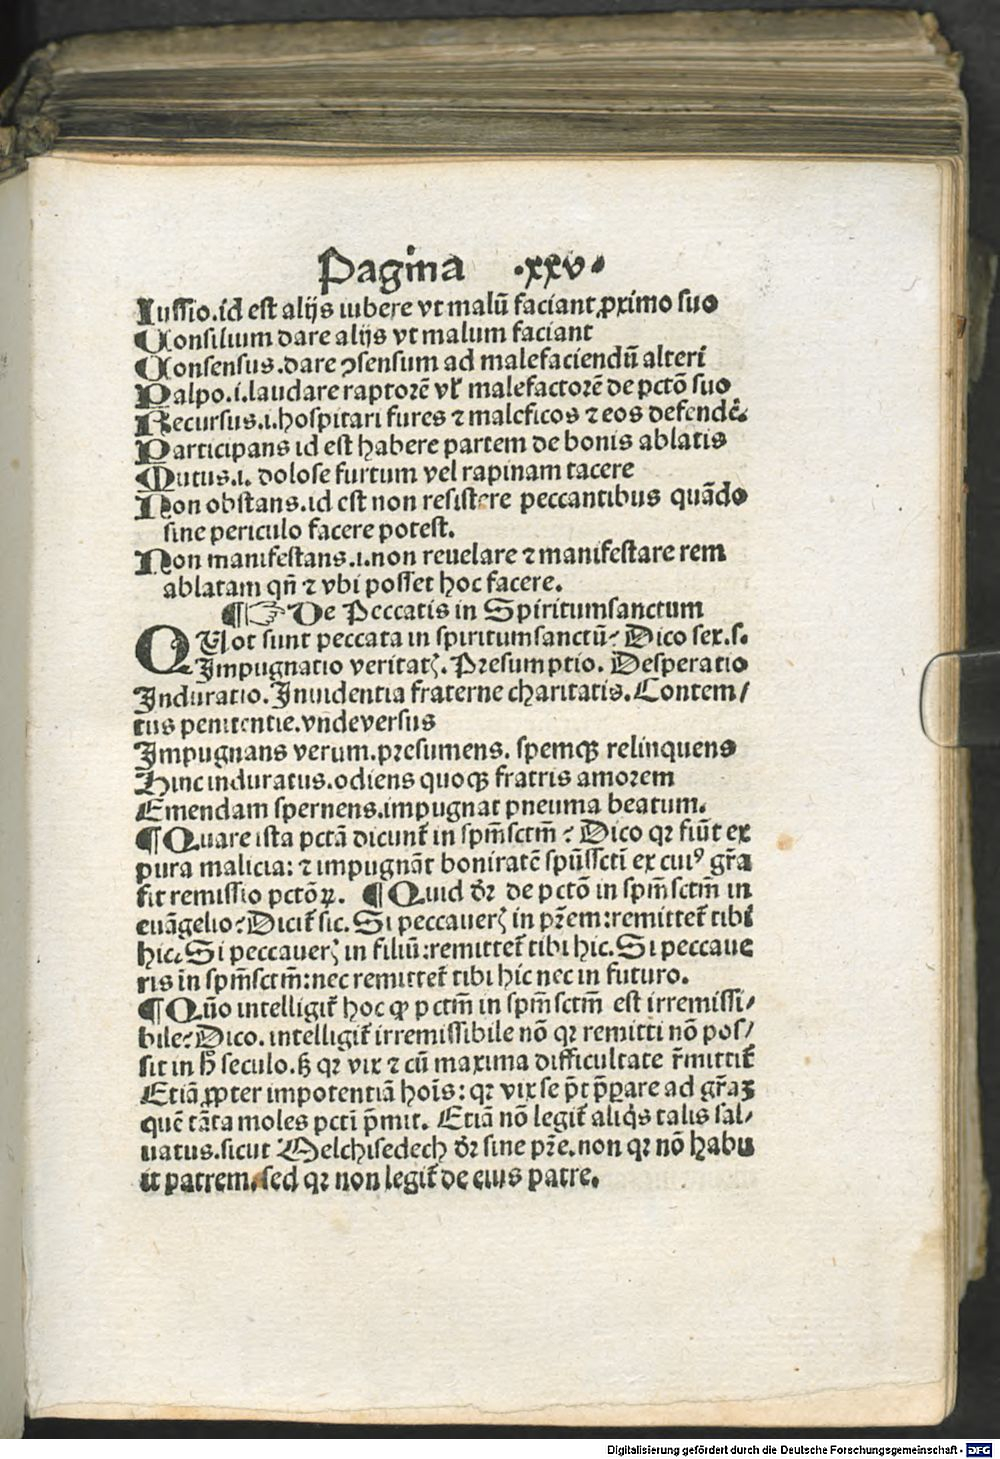 Pagina .xxv.
Iussio.id est alijs iubere vt malū faciant ꝓximo suo
Consilium dare alijs vt malum faciant
Consensus.dare ꝯsensum ad malefaciendū alteri
Palpo.i.laudare raptorē vl' malefactorē de pctō suo
Recursus.i.hospitari fures ⁊ maleficos ⁊ eos defendē.
Participans id est habere partem de bonis ablatis
Mutus.i. dolose furtum vel rapinam tacere
Non obstans.id est non resistere peccantibus quādo
sine periculo facere potest.
Non manifestans.i.non reuelare ⁊ manifestare rem
ablatam qn̄ ⁊ vbi posset hoc facere.
¶☞ De Peccatis in Spiritumsanctum
QUot sunt peccata in spiritumsanctū? Dico sex.s.
Impugnatio veritatꝭ. Presumptio. Desperatio
Induratio. Inuidentia fraterne charitatis. Contem/
tus penitentie.vndeversus
Impugnans verum.presumens. spemqꝫ relinquens
Hinc induratus.odiens quoqꝫ fratris amorem
Emendam spernens.impugnat pneuma beatum.
¶ Quare ista pctā dicunt᷑ in spm̄sctm̄? Dico qꝛ fiūt ex
pura malicia: ⁊ impugnāt bonitatē spūsscti ex cuiꝰ gr̄a
fit remissio pctōꝝ. ¶ Quid dr̄ de pctō in spm̄sctm̄ in
euāgelio? Dicit᷑ sic. Si peccauerꝭ in pr̄em:remittet᷑ tibi
hic. Si peccauerꝭ in filiū:remittet᷑ tibi hic. Si peccaue
ris in spm̄sctm̄: nec remittet᷑ tibi hic nec in futuro.
¶ Quō intelligit᷑ hoc ꝙ pctm̄ in spm̄sctm̄ est irremissi/
bile? Dico. intelligit᷑ irremissibile nō qꝛ remitti nō pos/
sit in h̄ seculo.sꝫ qꝛ vix ⁊ cū maxima difficultate r̄mittit᷑
Etiā ꝓpter impotentiā hoīs: qꝛ vix se p̄t p̄pare ad gr̄aꝫ
quē tāta moles pcti p̄mit. Etiā nō legit᷑ aliq̇s talis sal/
uatus.sicut Melchisedech dr̄ sine pr̄e.non qꝛ nō habu
it patrem.sed qꝛ non legit᷑ de eius patre.
Digitalisierung gefördert durch die Deutsche Forschungsgemeinschaft - DFG